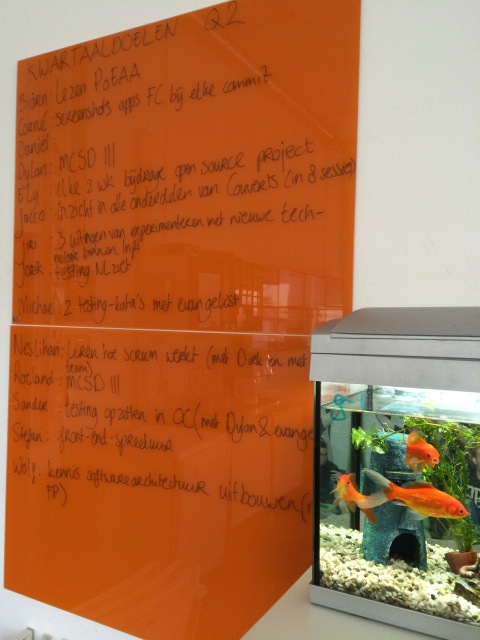 KWARTAALDOELEN Q2
Bjorn: lezen PoEAA
Corné: screenshots apps FC bij elke commit
Daniël
Dylan: MCSD !!!
Elly: elke 2 wk bijdrage open source project
Jacco: inzicht in alle onderdelen van Couverts (in 8 sessies)
Jori: 3 uitingen van experimenteren met nieuwe tech-
nologie binnen Infi
Jorik: testing NLziet
Michael: 2 testing-kata's met evangelist
Neslihan: Leren hoe scrum werkt (met Dirk en met
team)
Roeland: MCSD !!!
Sander: testing opzetten in OC (met Dylan & evange
Stefan: front-end-spreekuur
Wolf: kennis softwarearchitectuur uitbouwen (
FP)